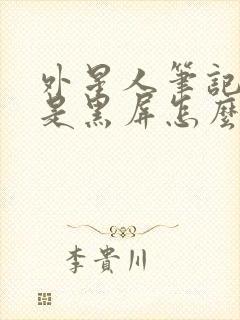 外星人筆記
是黑屏怎麼
李貴川